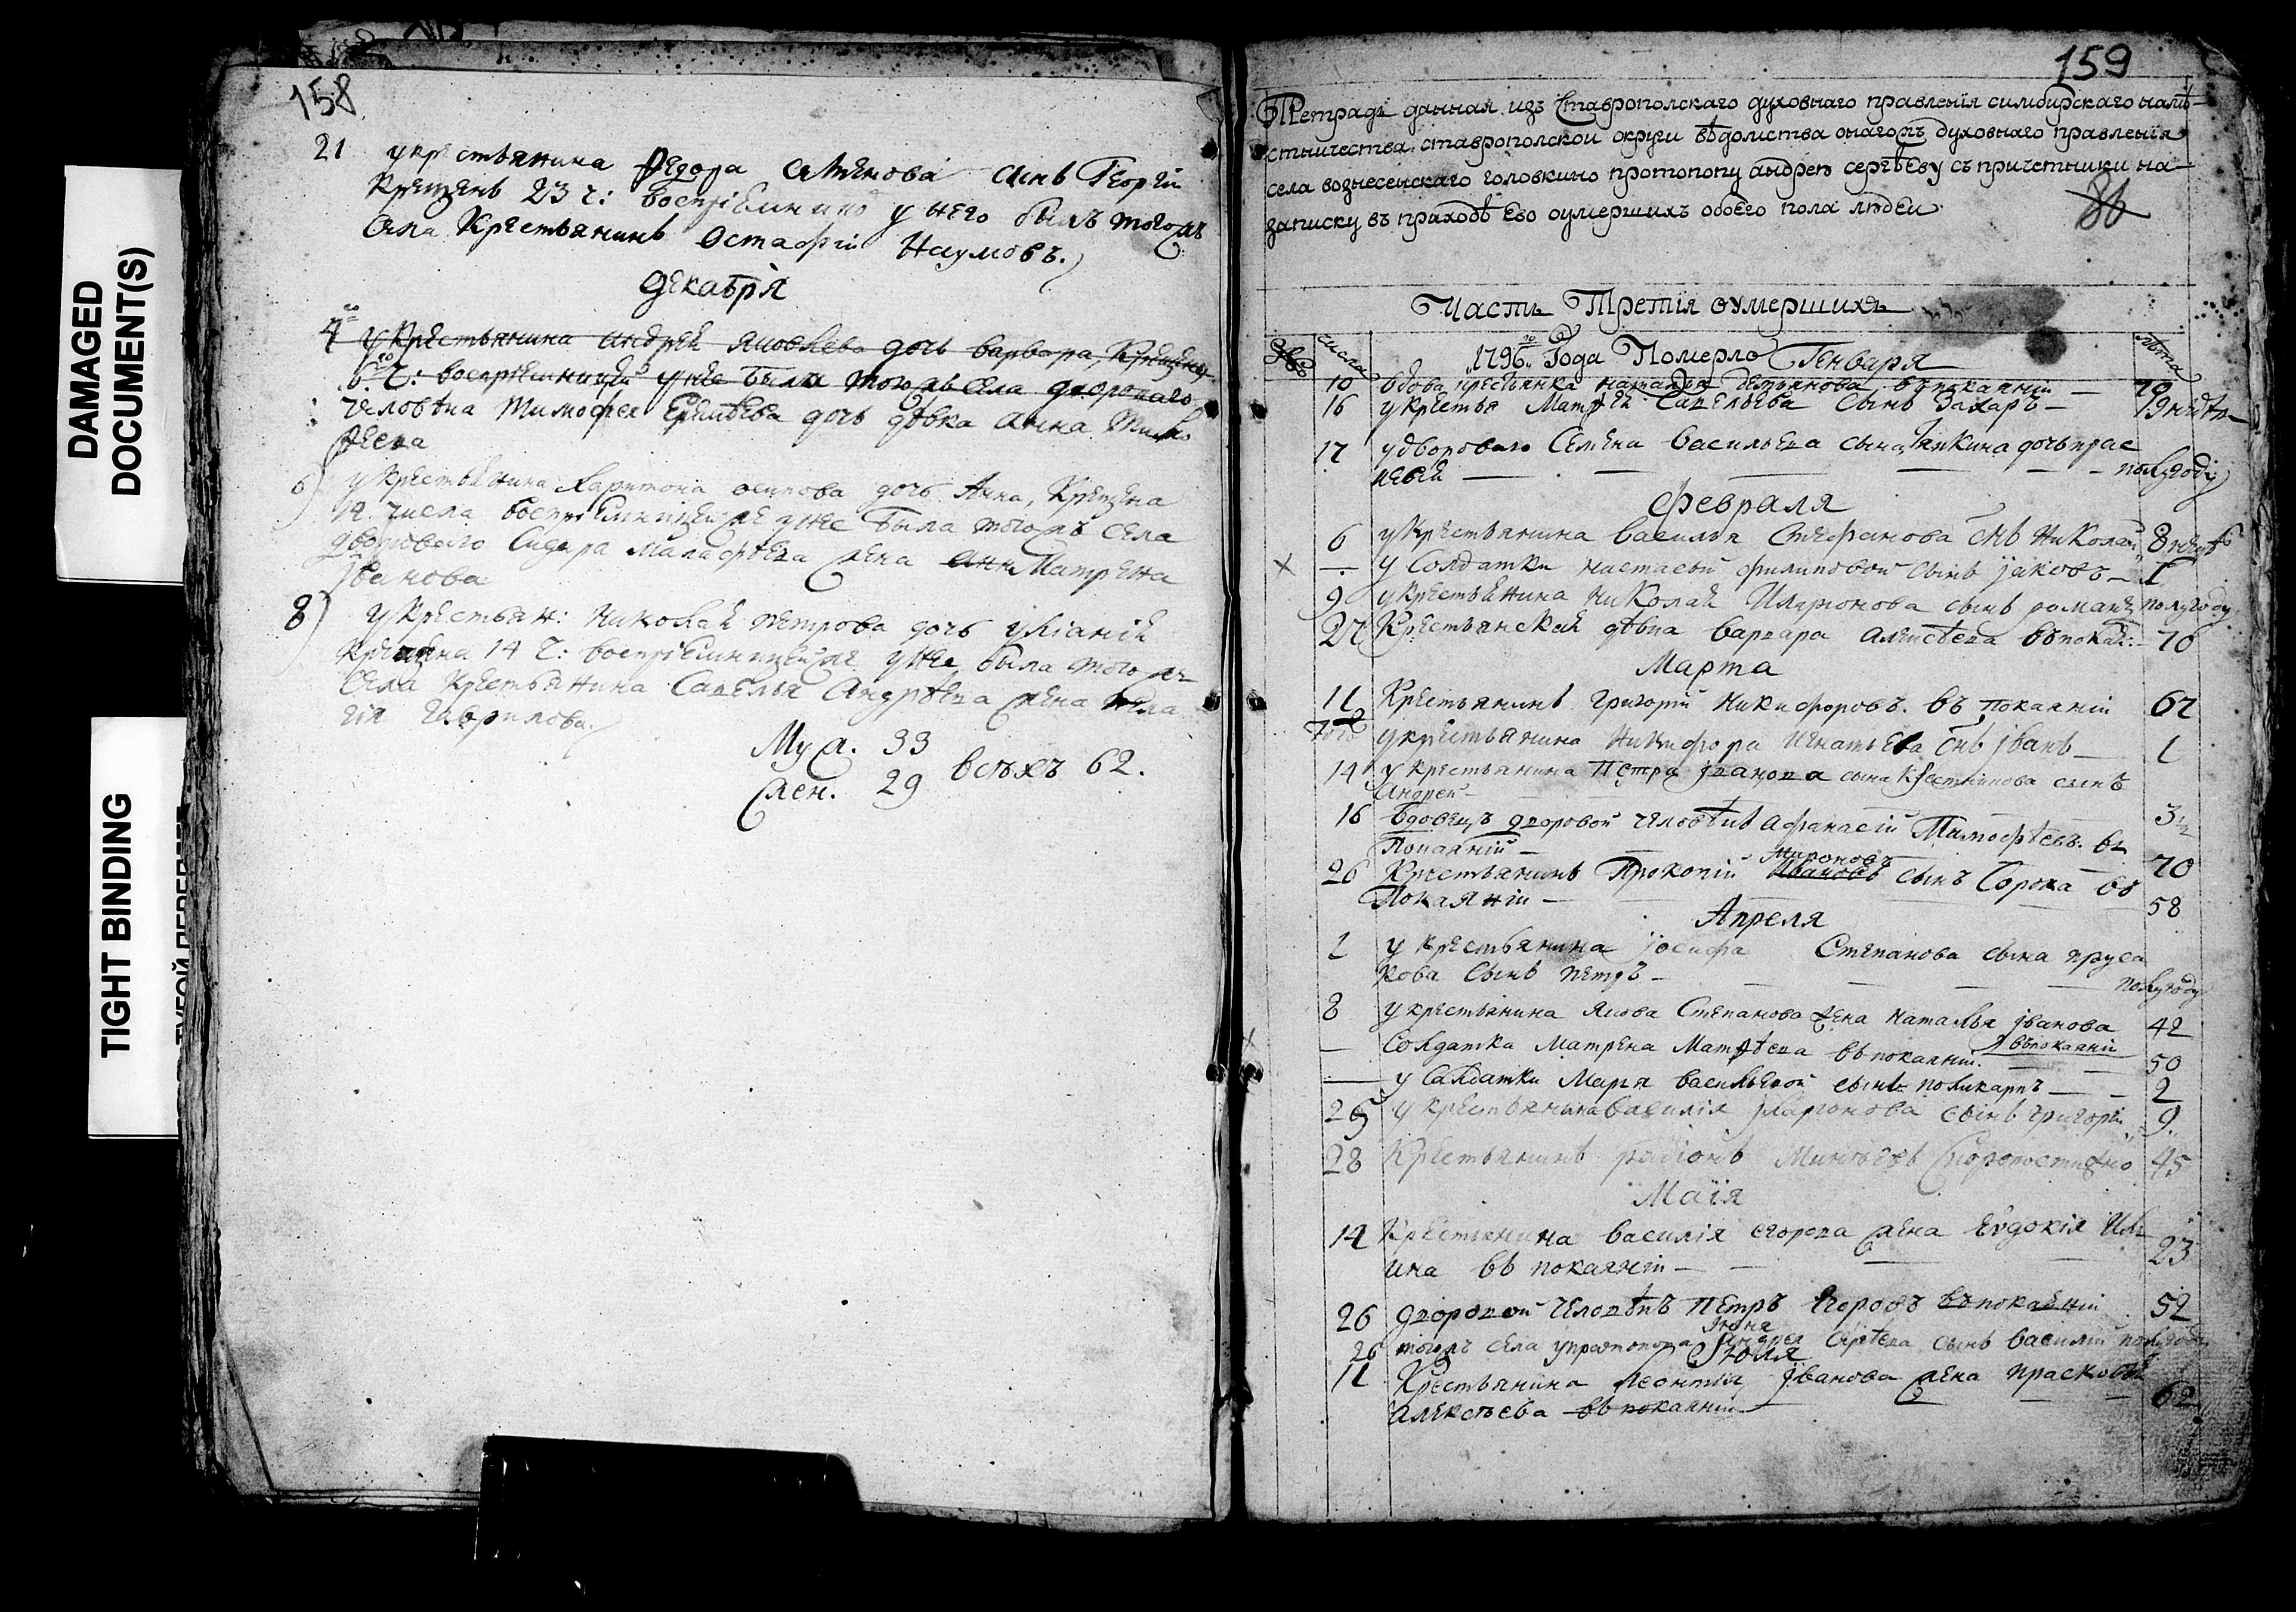 DAMAGED
DOCUMENT(S)
TIGHT BINDING
158
21 у крестьянина Федора Семенова сынъ Георгій
Крещенъ 23 ч: воспріемникъ у него былъ тогожъ
села Крестьянинъ Остафій Наумовъ.
декабря
4 у Крестьянина андрея яковлева дочь варвара, Крещена
6 ч: воспріемницей у нее была тогожъ села двороваго
человѣка Тимофея дочь дѣвка Анна Тимо
феева
6) у крестьянина Харитона осипова дочь Анна, Крещена
14 числа воспріемницею же у нее была тогожъ села
двороваго Сидора Малафѣева жена анн Матрена
јванова
8) у крестьян: Николая петрова дочь уліанія
крещена 14 ч: воспріемницей же у нее была тогож
села крестьянина Савелья Андрѣева жена
гаврилова.
Муж. 33
Жен. 29 всѣхъ 62.
159
Тетрадь данная изъ Ставрополскаго духовнаго правленія симбирскаго намѣ-
стничества ставрополской округи вѣдомства онагожъ духовнаго правленія
села вознесенскаго головкино протопопу андрею сергѣеву съ причетники на
записку въ приходѣ его оумершихъ обоего пола людей
86
Часть Третія оумершихъ
числа лѣта
1796 го Года Померло Генваря
10 вдова крестьянка наталья демьянова въ покаяніи — 70
16 у крестья Матфея Савельева сынъ Захаръ — 19 недѣл
17 у двороваго Семена Васильева сына дочь прас
ковья — полугоду
февраля
6 у Крестьянина Василья Стефанова снъ Николай 8 недѣ
× — у Солдатки настасьи филиповой сынъ јаковъ — 1
9 у крестьянина Николая Иларионова сынъ романъ полугоду
27 Крестьянская дѣвка варвара алексѣева въ покая: — 70
Марта
11 Крестьянинъ григорій Никифоровъ. въ покаяніи 67
Тогож у крестьянина Никифора Игнатьева снъ јванъ — 1
14 у крестьянина Петра јванова сына сынъ
Андрей — 3 1/2
16 вдовецъ дворовой человѣкъ Афанасій Тимофѣевъ. въ
Покаяніи — 70
Мироновъ
26 Крестьянинъ Прокопій Ивановъ сынъ Сорока въ
Покаяніи — 58
Апреля
1 у крестьянина јосифа Степанова сына пруса
кова сынъ петръ — полугоду
8 у крестьянина Якова Степанова жена наталья јванова 42
въ покаяніи
— Солдатка Матрена Матфѣева въ покаяніи. 50
— у Салдатки Марья васильевой сынъ поликарпъ — 2
25 у крестьянина василія јларионова сынъ григорій 9.
28 Крестьянинъ родіонъ Минѣевъ Скоропостижно 45
Маія
14 Крестьянина василія егорова жена Евдокія Иль
ина въ покаяніи — 23
26 дворовой человѣкъ Петръ Егоровъ въ покаяніи 52
Іюня
26 тогожъ села у протопопа Андрея Сергѣева сынъ василій полугоду
Іюля
11 Крестьянина Леонтія јванова жена прасковья
алексѣева въ покаяніи 62